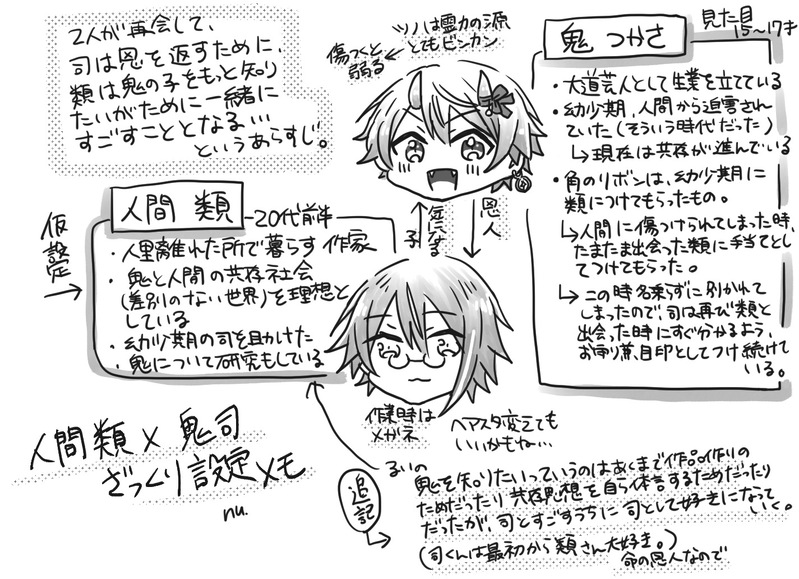 2人が再会して、
司は恩を返すために、
類は鬼の子をもっと知り
たいがために一緒に
すごすこととなる…
というあらすじ。
ツノは霊力の源
とてもビンカン
傷つくと
弱る
鬼 つかさ
見た目
15〜17才
・大道芸人として生業を立てている
・幼少期、人間から迫害され
ていた(そういう時代だった)
↳現在は共存が進んでいる
・角のリボンは、幼少期に
類につけてもらったもの。
↳人間に傷つけられてしまった時、
たまたま出会った類に手当てとし
てつけてもらった。
↳この時名乗らずに別かれて
しまったので、司は再び類と
出会った時にすぐ分かるよう、
お守り兼、目印としてつけ続けて
いる。
仮設定
人間 類
20代前半
・人里離れた所で暮らす作家
・鬼と人間の共存社会
(差別のない世界)を理想と
している
・幼少期の司を助けた
・鬼について研究もしている
気になる
子
恩人
作業時は
メガネ
ヘアスタ変えても
いいかもね…
人間類×鬼司
ざっくり設定メモ
nu.
追記
るいの
鬼を知りたいっていうのはあくまで作品作りの
ためだったり共存思想を自ら体言するためだったり
だったが、司とすごすうちに司として好きになって
いく。
(司くんは最初から類さん大好き。)
命の恩人なので